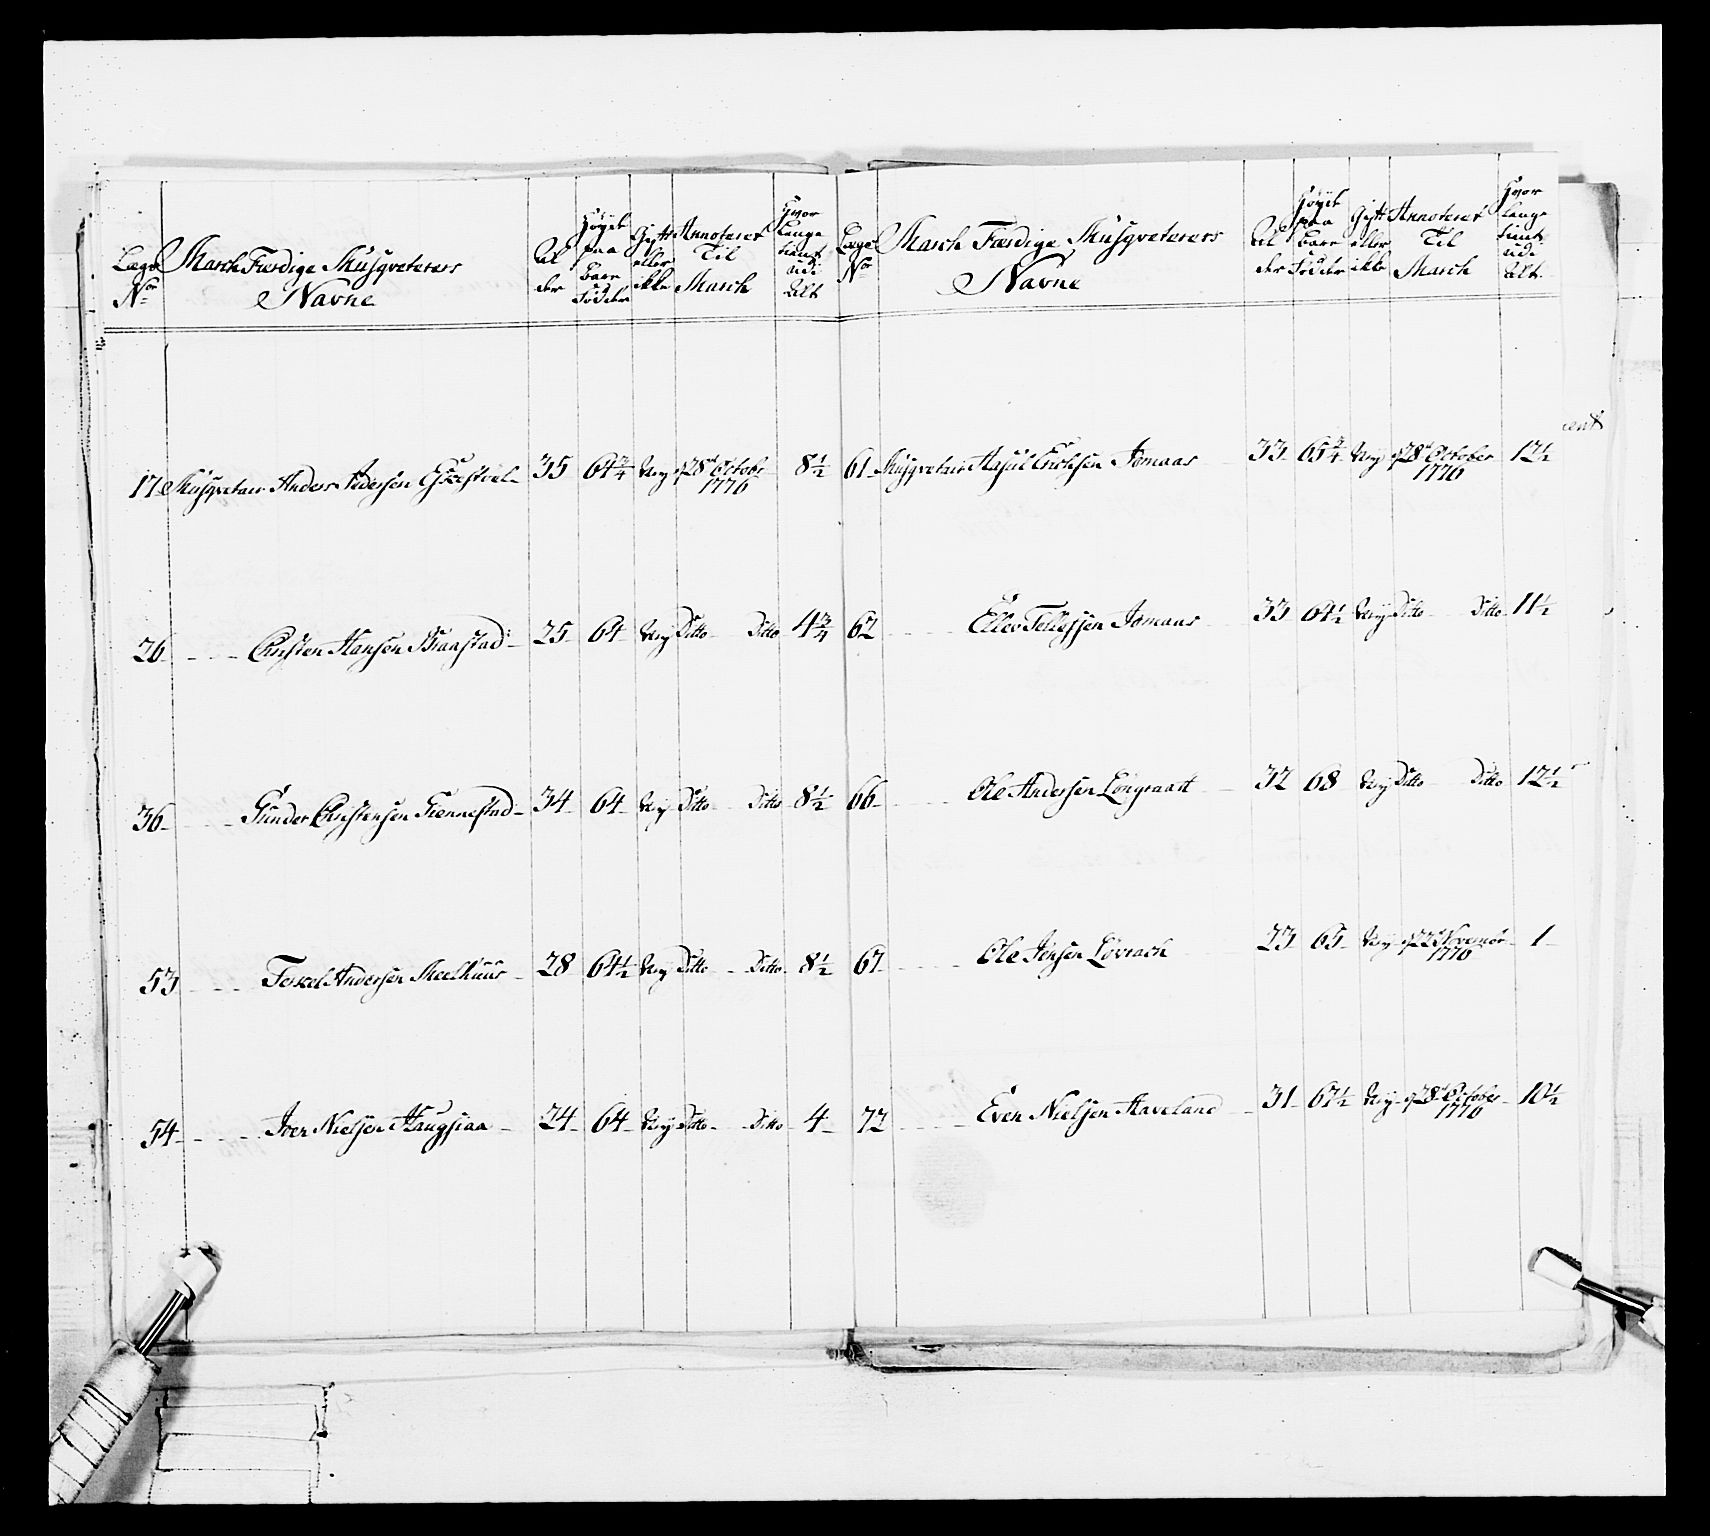 Lægs No
March Færdige Musqveterers Navne
Al der
Høyet paa Baare Fødder
Gift eller ikke
Annoteret Til March
Hvor Længe tient udi Alt
17 Musqveteer Anders Andersen 35 64 3/4 Ugij d 28 Octobr 1776 8 1/2
26 Christen Hansen Braastad 25 64 Ugij Ditto Ditto 4 3/4
36 Gunder Christensen Tiennestad 34 64 Ugij Ditto Ditto 8 1/2
53 Terkel Andersen Meelhuus 28 64 1/2 Ugij Ditto Ditto 8 1/2
54 Iver Nielsen Haugsiaa 24 64 Ugij Ditto Ditto 4
Lægs No
March Færdige Musqveterers Navne
Al der
Høyet paa Baare Fødder
Gift eller ikke
Annoteret Til March
Hvor Længe tient udi Alt
61 Musqveteer Erichsen Jomaas 33 65 3/4 Ugij d 28 October 1776 12 1/2
62 Ellev Tellefsen Jomaas 33 64 1/2 Ugij Ditto Ditto 11 1/2
66 Ole Andersen Longraatt 32 68 Ugij Ditto Ditto 12 1/2
67 Ole Jensen Løvrach 23 65 Ugij d 22 Novembr 1776 1
72 Even Nielsen Aaveland 31 67 1/2 Ugij d 28 October 1776 10 1/2